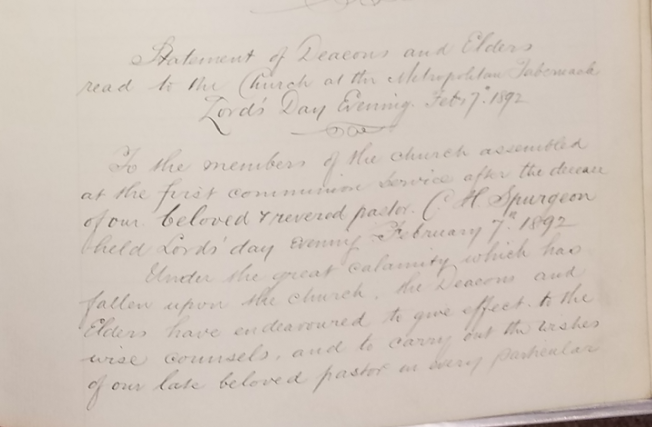 Statement of Deacons and Elders
read to the Church at the Metropolitan Tabernacle
Lord's Day Evening. Feb 7th 1892
To the members of the church assembled
at the first communion service after the decease
of our beloved & revered pastor. C. H. Spurgeon
held Lords' day Evening February 7th 1892
Under the great calamity which has
fallen upon the church, the Deacons and
Elders have endeavoured to give effect to the
wise counsels, and to carry out the wishes
of our late beloved pastor in every particular